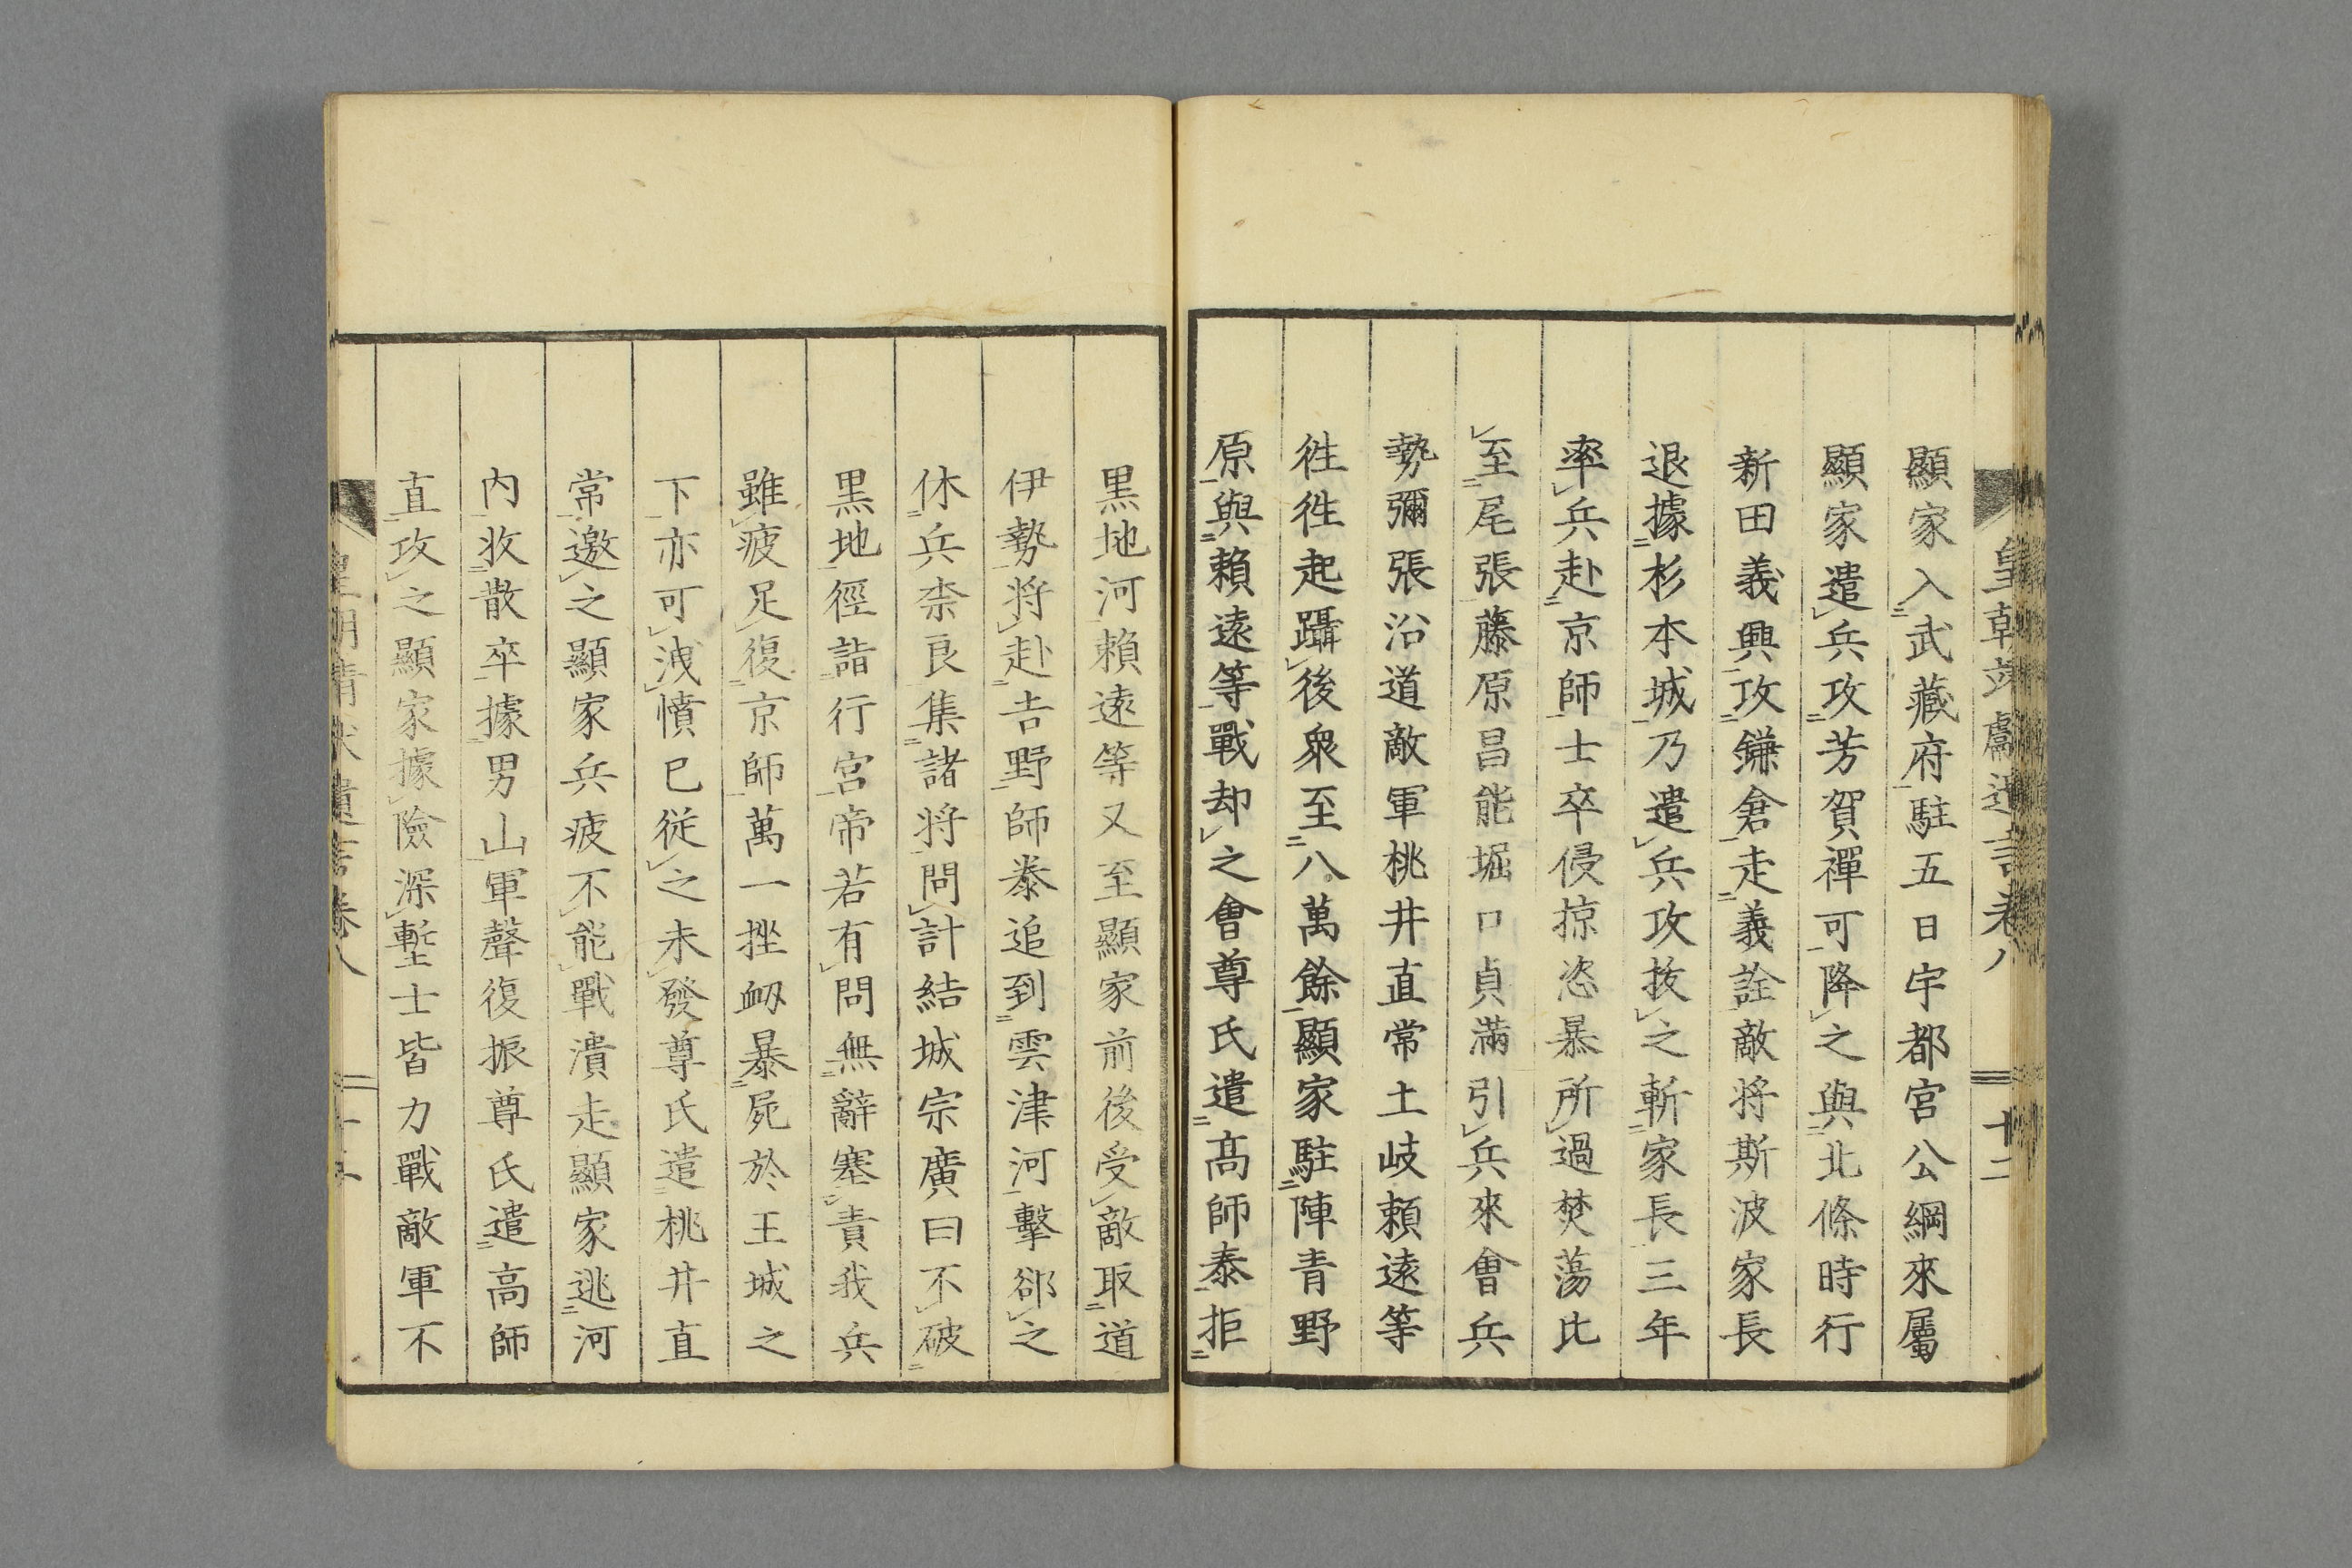 顯家入武藏府駐五日宇都宮公綱來屬
顯家遣兵攻芳賀禪可降之與北條時行
新田義興攻鎌倉走義詮敵将斯波家長
退據杉本城乃遣兵攻拔之斬家長三年
率兵赴京師士卒侵掠恣暴所過焚蕩比
至尾張藤原昌能堀口貞滿引兵來會兵
勢彌張沿道敵軍桃井直常土岐賴遠等
徃徃起躡後衆至八萬餘顯家駐陣青野
原與賴遠等戰却之會尊氏遣高師泰拒
黒地河賴遠等又至顯家前後受敵取道
伊勢将赴吉野師泰追到雲津河擊郤之
休兵柰良集諸将問計結城宗廣曰不破
黒地徑詣行宮帝若有問無辭塞責我兵
雖疲足復京師萬一挫衂暴屍於王城之
下亦可洩憤已從之未發尊氏遣桃井直
常邀之顯家兵疲不能戰潰走顯家逃河
内收散卒據男山軍聲復振尊氏遣高師
直攻之顯家據險深塹士皆力戰敵軍不